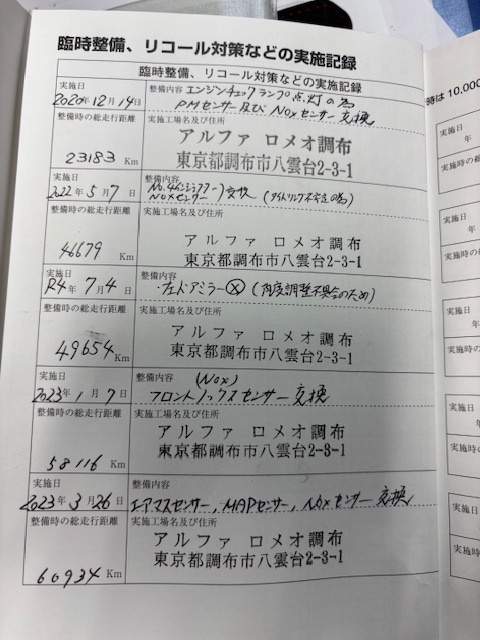 臨時整備、リコール対策などの実施記録
臨時整備、リコール対策などの実施記録
実施日
2020年12月14日
整備内容 エンジンチェックランプ点灯の為
PMセンサー及びNOxセンサー交換
整備時の総走行距離
23183 Km
実施工場名及び住所
アルファ ロメオ調布
東京都調布市八雲台2-3-1
実施日
2022年5月7日
整備内容
No.4インジェクター
NOxセンサー 交換 (アイドリング不安定の為)
整備時の総走行距離
46679 Km
実施工場名及び住所
アルファ ロメオ調布
東京都調布市八雲台2-3-1
実施日
R4年7月4日
整備内容
左ドアミラーⓧ (角度調整不具合のため)
整備時の総走行距離
49654 Km
実施工場名及び住所
アルファ ロメオ調布
東京都調布市八雲台2-3-1
実施日
2023年1月7日
整備内容 (NOx)
フロントノックスセンサー交換
整備時の総走行距離
58116 Km
実施工場名及び住所
アルファ ロメオ調布
東京都調布市八雲台2-3-1
実施日
2023年3月26日
整備内容
エアマスセンサー, MAPセンサー, NOxセンサー交換
整備時の総走行距離
60934 Km
実施工場名及び住所
アルファ ロメオ調布
東京都調布市八雲台2-3-1
時は 10,000
実施日
年
整備時の
実施日
年
整備時の
実施日
年
整備時の
実施日
年
整備時の
実施日
年
整備時の